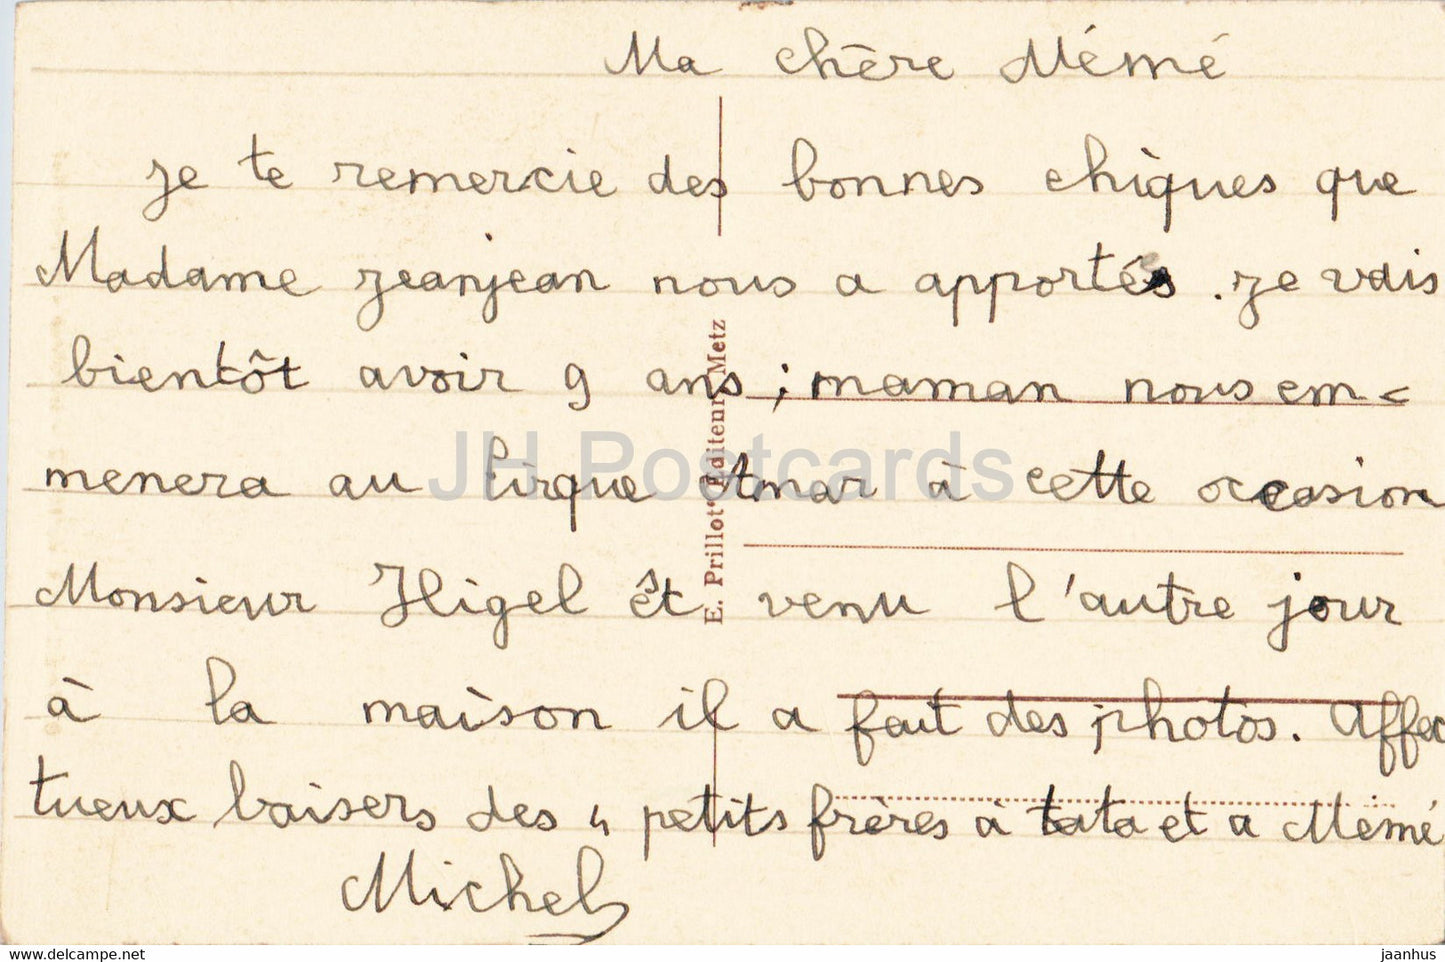 Ma chère Mémé
je te remercie des bonnes chiques que
Madame jeanjean nous a apportés. je vais
bientôt avoir 9 ans ; maman nous em-
menera au Cirque Amar à cette occasion
Monsieur Higel êt venu l'autre jour
à la maison il a fait des photos. Affec
tueux baisers des 4 petits frères à tata et a Mémé
Michel
E. Prillot Editeur, Metz
JH Postcards
www.delcampe.net
jaanhus